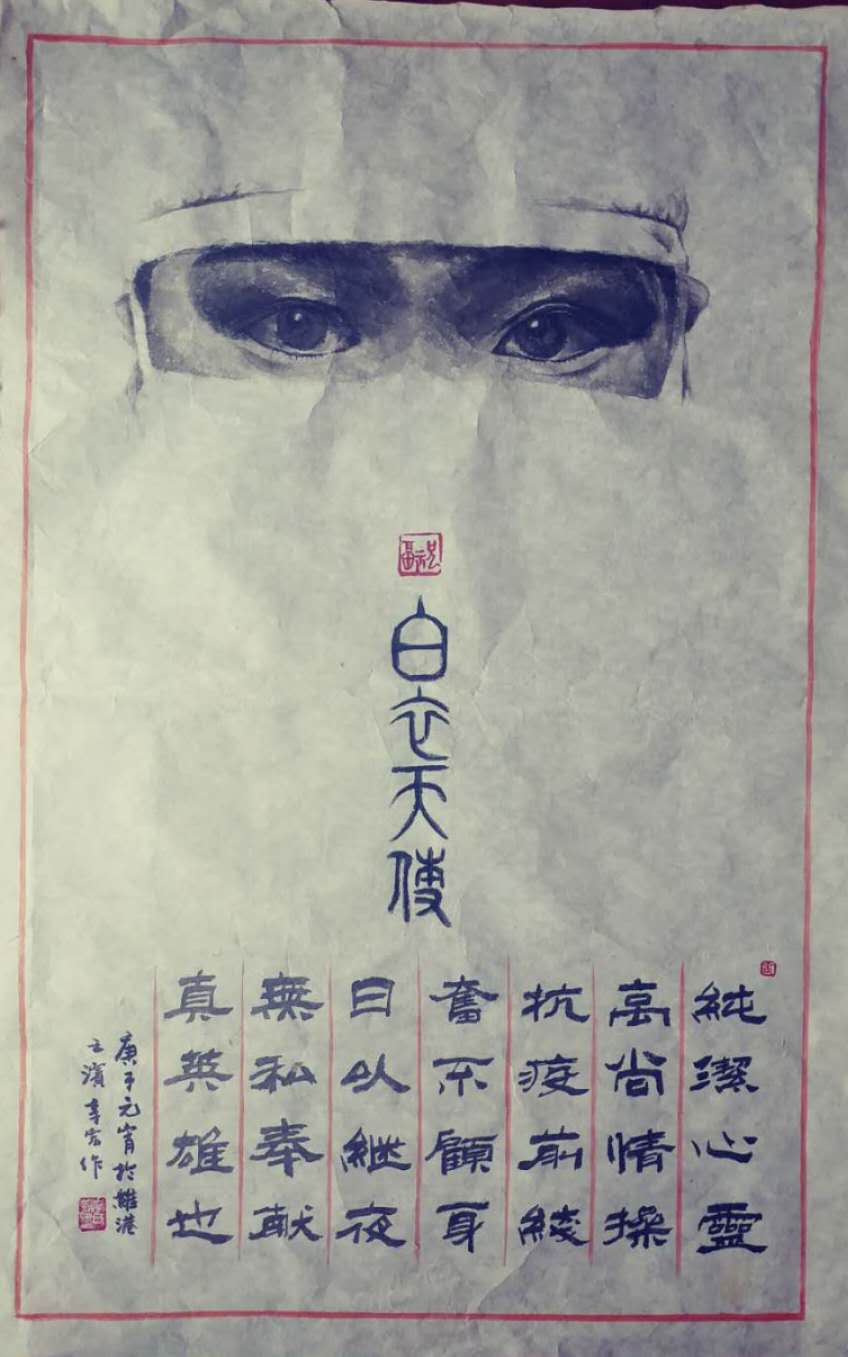 白衣天使
純潔心靈
高尚情操
抗疫前綫
奮不顧身
日以継夜
無私奉献
真英雄也
庚子元宵於維港
之濱 作